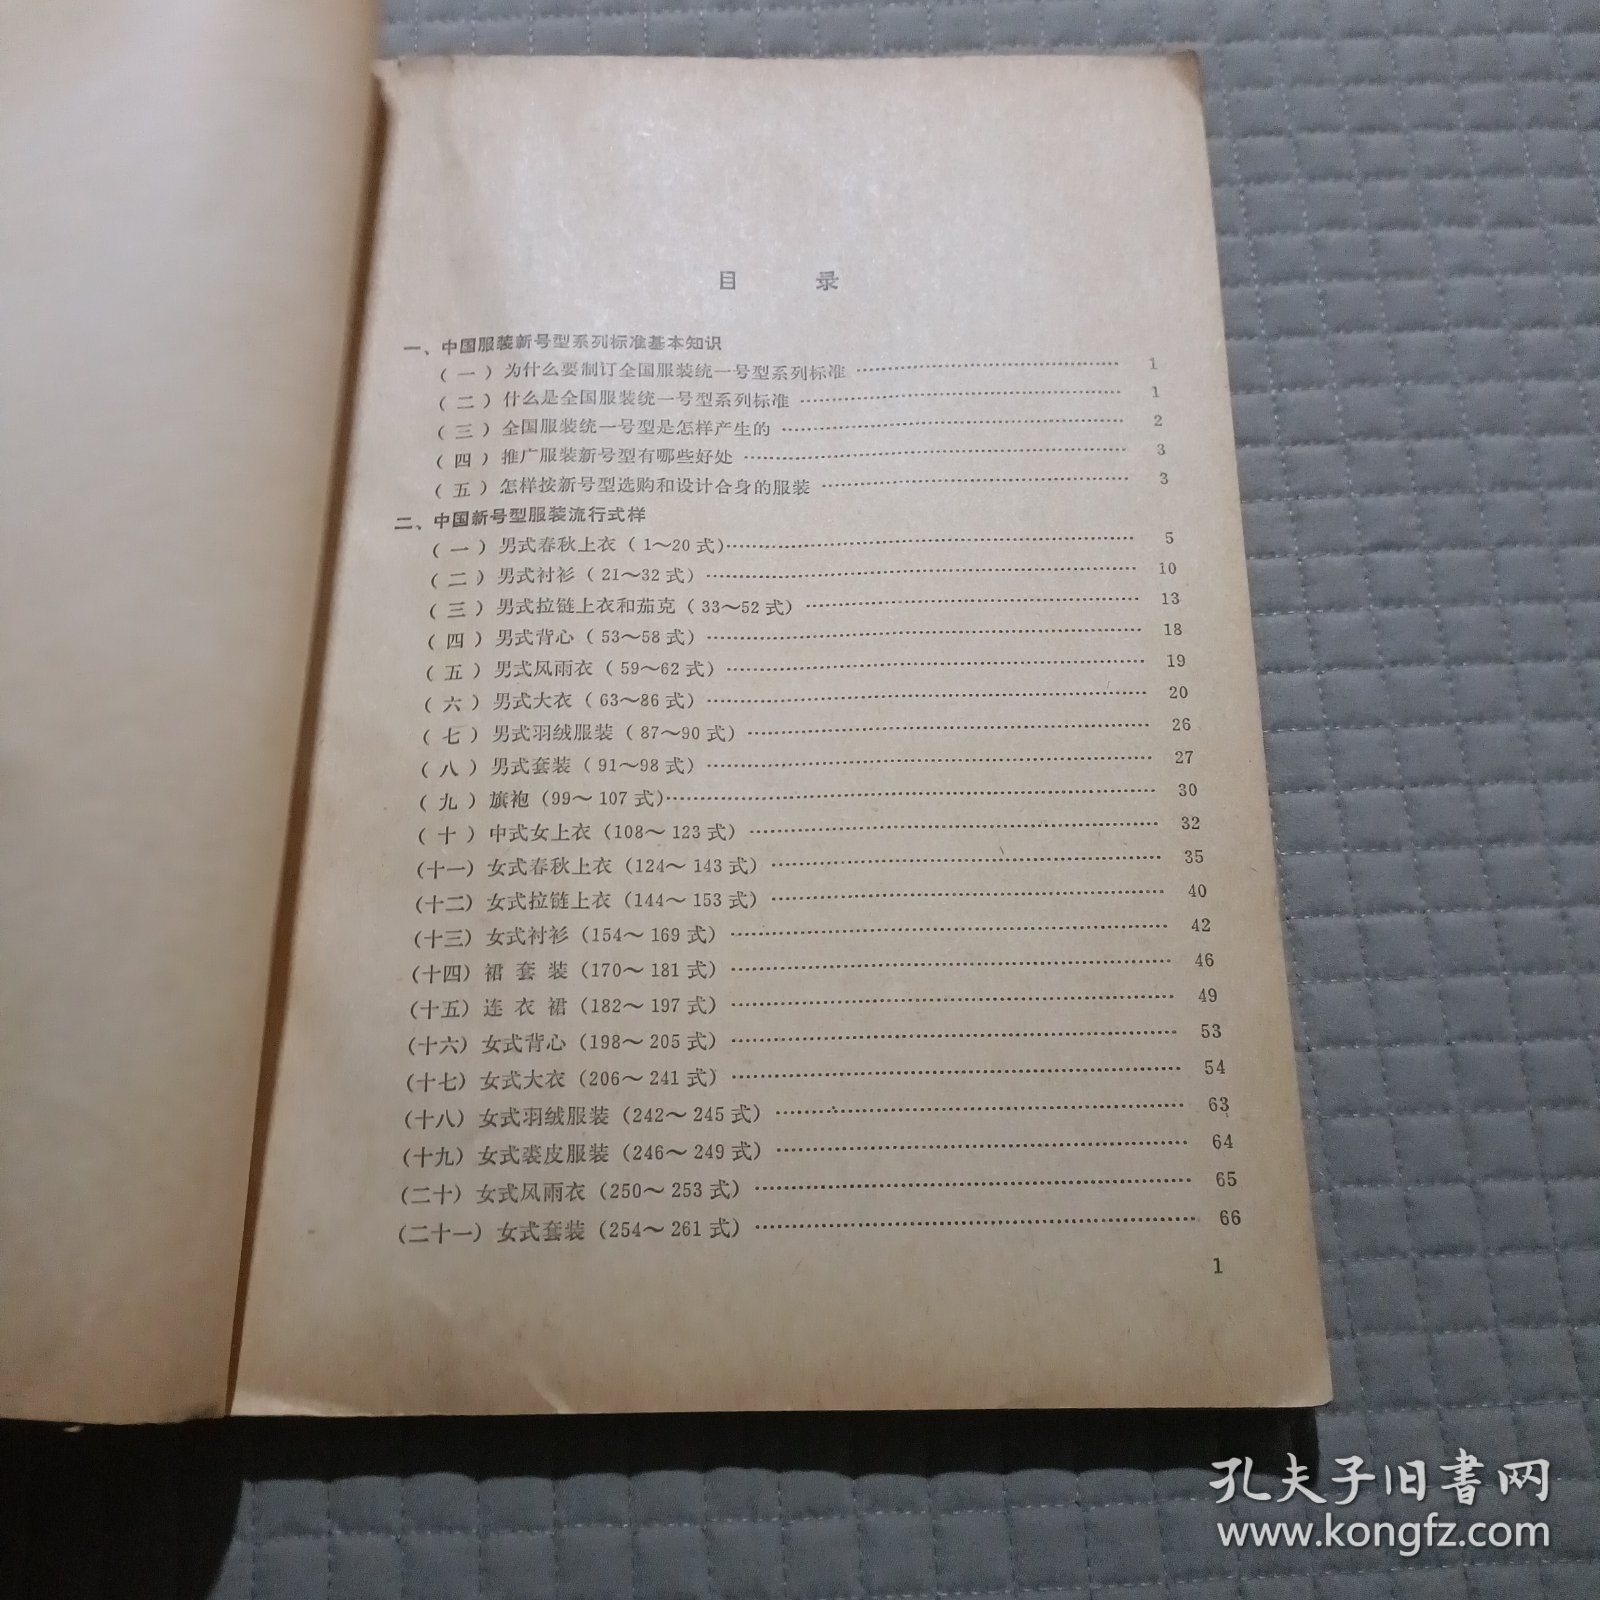 目 录
一、中国服装新号型系列标准基本知识
（一）为什么要制订全国服装统一号型系列标准 …… 1
（二）什么是全国服装统一号型系列标准 …… 1
（三）全国服装统一号型是怎样产生的 …… 2
（四）推广服装新号型有哪些好处 …… 3
（五）怎样按新号型选购和设计合身的服装 …… 3
二、中国新号型服装流行式样
（一）男式春秋上衣（1～20式） …… 5
（二）男式衬衫（21～32式） …… 10
（三）男式拉链上衣和茄克（33～52式） …… 13
（四）男式背心（53～58式） …… 18
（五）男式风雨衣（59～62式） …… 19
（六）男式大衣（63～86式） …… 20
（七）男式羽绒服装（87～90式） …… 26
（八）男式套装（91～98式） …… 27
（九）旗袍（99～107式） …… 30
（十）中式女上衣（108～123式） …… 32
（十一）女式春秋上衣（124～143式） …… 35
（十二）女式拉链上衣（144～153式） …… 40
（十三）女式衬衫（154～169式） …… 42
（十四）裙套装（170～181式） …… 46
（十五）连衣裙（182～197式） …… 49
（十六）女式背心（198～205式） …… 53
（十七）女式大衣（206～241式） …… 54
（十八）女式羽绒服装（242～245式） …… 63
（十九）女式裘皮服装（246～249式） …… 64
（二十）女式风雨衣（250～253式） …… 65
（二十一）女式套装（254～261式） …… 66
1
孔夫子旧書网
www.kongfz.com